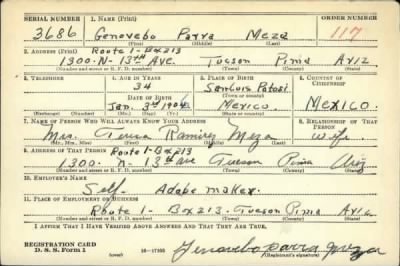 SERIAL NUMBER 1. NAME (Print) ORDER NUMBER
3686 Genovebo Parra Meza 117
(First) (Middle) (Last)
2. ADDRESS (Print) Route 1-Box 213
1300. N- 13th Ave. Tucson Pima Ariz
(Number and street or R. F. D. number) (Town) (County) (State)
4. TELEPHONE 3. AGE IN YEARS 5. PLACE OF BIRTH 6. COUNTRY OF CITIZENSHIP
34 San Luis Potosi
DATE OF BIRTH (Town or county)
Jan. 3rd 1906 Mexico. MEXICO.
(Exchange) (No.) (Mo.) (Day) (Yr.) (State or country)
7. NAME OF PERSON WHO WILL ALWAYS KNOW YOUR ADDRESS 8. RELATIONSHIP OF THAT PERSON
Mrs. Teresa Ramirez Meza Wife.
(Mr., Mrs., Miss) (First) (Middle) (Last)
9. ADDRESS OF THAT PERSON Route 1-Box 213
1300. N- 13th Ave Tucson Pima Ariz
(Number and street or R. F. D. number) (Town) (County) (State)
10. EMPLOYER'S NAME
Self. Adobe maker.
11. PLACE OF EMPLOYMENT OR BUSINESS
Route 1- Box 213. Tucson Pima Ariz
(Number and street or R. F. D. number) (Town) (County) (State)
I AFFIRM THAT I HAVE VERIFIED ABOVE ANSWERS AND THAT THEY ARE TRUE.
REGISTRATION CARD
D. S. S. Form 1 (over) 16—17105 Genovebo parra Meza
(Registrant's signature)